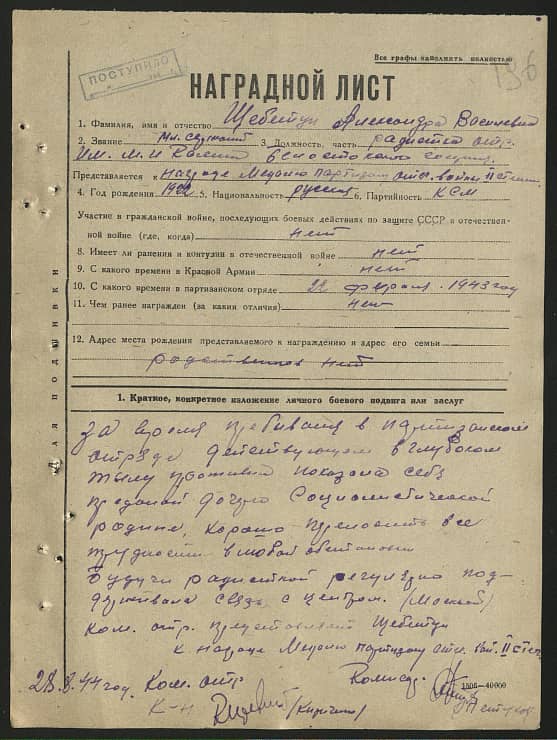 Все графы заполнить полностью
ПОСТУПИЛО
136
НАГРАДНОЙ ЛИСТ
1. Фамилия, имя и отчество Щебетун Александра Васильевна
2. Звание Мл. сержант 3. Должность, часть радистка отр.
Им. М. И.
Представляется к награде Медалью партизану отеч. войны II степ.
4. Год рождения 1922 5. Национальность русская 6. Партийность КСМ
Участие в гражданской войне, последующих боевых действиях по защите СССР и отечествен-
ной войне (где, когда) нет
8. Имеет ли ранения и контузии в отечественной войне нет
9. С какого времени в Красной Армии нет
10. С какого времени в партизанском отряде 22 февраля 1943 год
11. Чем ранее награжден (за какия отличия) нет
12. Адрес места рождения представляемого к награждению и адрес его семьи
родственников нет
1. Краткое, конкретное изложение личного боевого подвига или заслуг
за время пребывания в партизанском
отряде действующем в глубоком
тылу противника показала себя
преданой дочую Социалистической
родине, хорошо преносить все
трудности в любой обстановки
Будучи радисткой регулярно под-
держивала связь с центром. (Москвой)
Ком. отр. представляет Щебетун
к награде Медалью партизану отеч. вой. II степ
28.8.44 год. Ком. отр Комиссар
К-н
1506-40000
Для подшивки